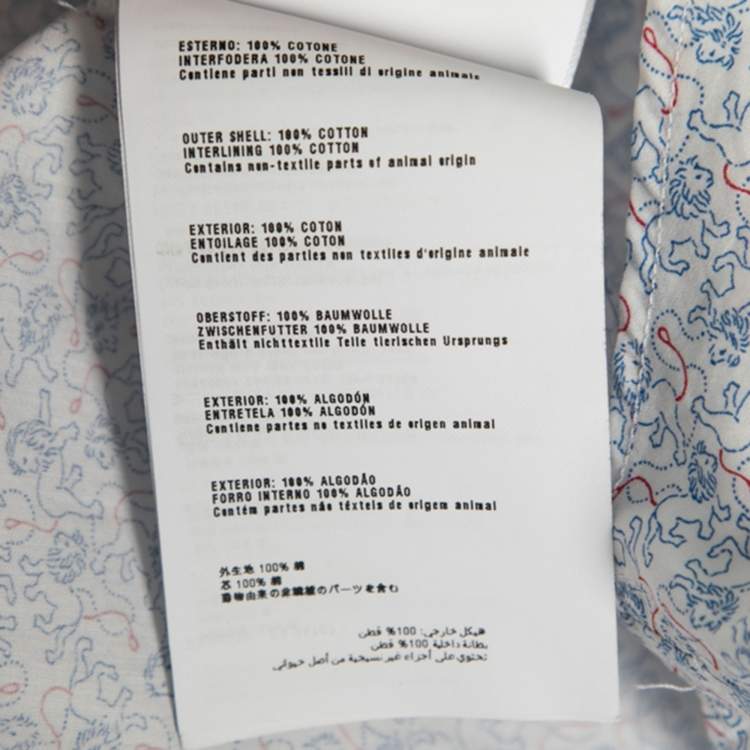 ESTERNO: 100% COTONE
INTERFODERA 100% COTONE
Contiene parti non tessili di origine animale
OUTER SHELL: 100% COTTON
INTERLINING 100% COTTON
Contains non-textile parts of animal origin
EXTERIOR: 100% COTON
ENTOILAGE 100% COTON
Contient des parties non textiles d'origine animale
OBERSTOFF: 100% BAUMWOLLE
ZWISCHENFUTTER 100% BAUMWOLLE
Enthält nichttextile Teile tierischen Ursprungs
EXTERIOR: 100% ALGODÓN
ENTRETELA 100% ALGODÓN
Contiene partes no textiles de origen animal
EXTERIOR: 100% ALGODÃO
FORRO INTERNO 100% ALGODÃO
Contém partes não têxteis de origem animal
外生地 100% 綿
芯 100% 綿
動物由来の非繊維のパーツを含む
هيكل خارجي: 100% قطن
بطانة داخلية 100% قطن
تحتوي على أجزاء غير نسيجية من أصل حيواني